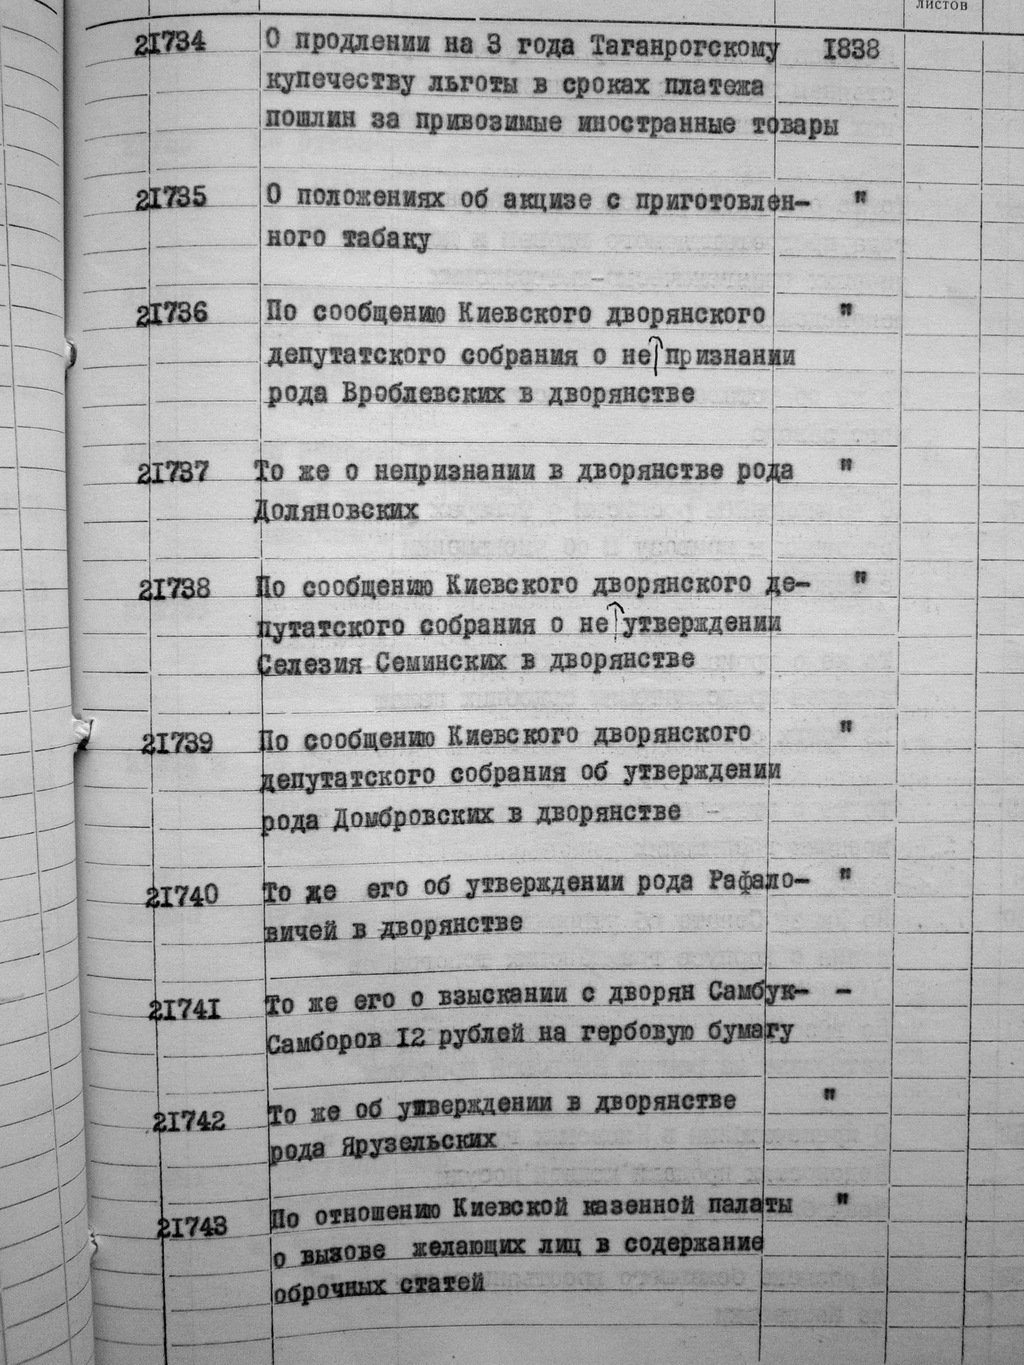 листов
21734 О продлении на 3 года Таганрогскому 1838
купечеству льготы в сроках платежа
пошлин за привозимые иностранные товары
21735 О положениях об акцизе с приготовлен- "
ного табаку
21736 По сообщению Киевского дворянского "
депутатского собрания о не признании
рода Вроблевских в дворянстве
21737 То же о непризнании в дворянстве рода "
Доляновских
21738 По сообщению Киевского дворянского де- "
путатского собрания о не утверждении
Селезия Семинских в дворянстве
21739 По сообщению Киевского дворянского "
депутатского собрания об утверждении
рода Домбровских в дворянстве
21740 То же его об утверждении рода Рафало- "
вичей в дворянстве
21741 То же его о взыскании с дворян Самбук- -
Самборов 12 рублей на гербовую бумагу
21742 То же об утверждении в дворянстве "
рода Ярузельских
21743 По отношению Киевской казенной палаты "
о вызове желающих лиц в содержание
оброчных статей